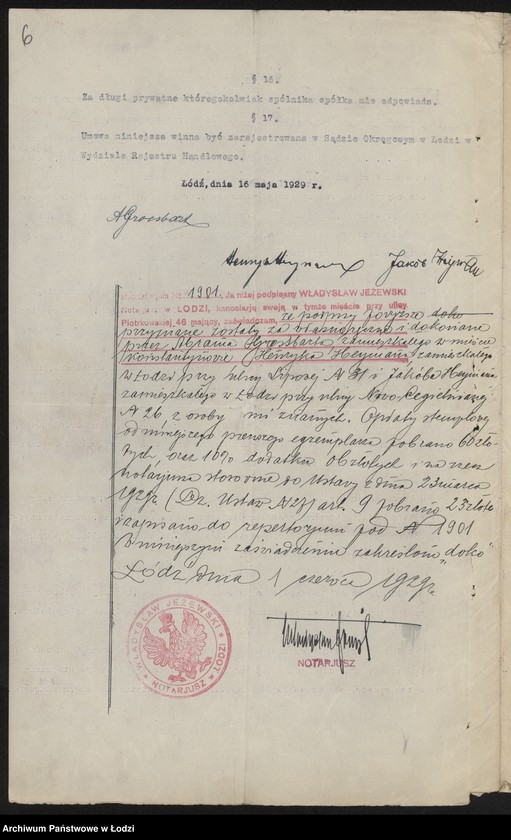 6
§ 16.
Za długi prywatne któregokolwiek spólnika spółka nie odpowiada.
§ 17.
Umowa niniejsza winna być zarejestrowana w Sądzie Okręgowym w Łodzi w
Wydziale Rejestru Handlowego.
Łódź, dnia 16 maja 1929 r.
AGroosbart
Jakób
1901. Ja niżej podpisany WŁADYSŁAW JEŻEWSKI
w ŁODZI, kancelarję swoją w tymże mieście przy ulicy
Piotrkowskiej, 46 mający, zaświadczam, że podpisy powyższe doko
przyznane zostały za własnoręczne i dokonane
przez Abrama zamieszkałego w mieście
Konstantynowie Henryka Heymana zamieszkałego
w Łodzi przy ulicy Lipowej № 31 i Jakóba Heymana
zamieszkałego w Łodzi przy ulicy Nowo-Cegielnianej
№ 26, z osoby mi znanych. Opłaty stemplowej
od niniejszego pierwszego egzemplarza pobrano 60 zło-
tych, oraz 10% dodatku 6 złotych i na rzecz
notarjusza stosownie do Ustawy z dnia 23 marca
1929r. (Dz. Ustaw № 27) art. 9 pobrano 23 złote
i zapisano do repertorjum pod № 1901
W niniejszym zaświadczeniu zakreślono "doko"
Łódź dnia 1 czerwca 1929r.
WŁADYSŁAW JEŻEWSKI
NOTARJUSZ
ŁODZI
NOTARJUSZ
Archiwum Państwowe w Łodzi